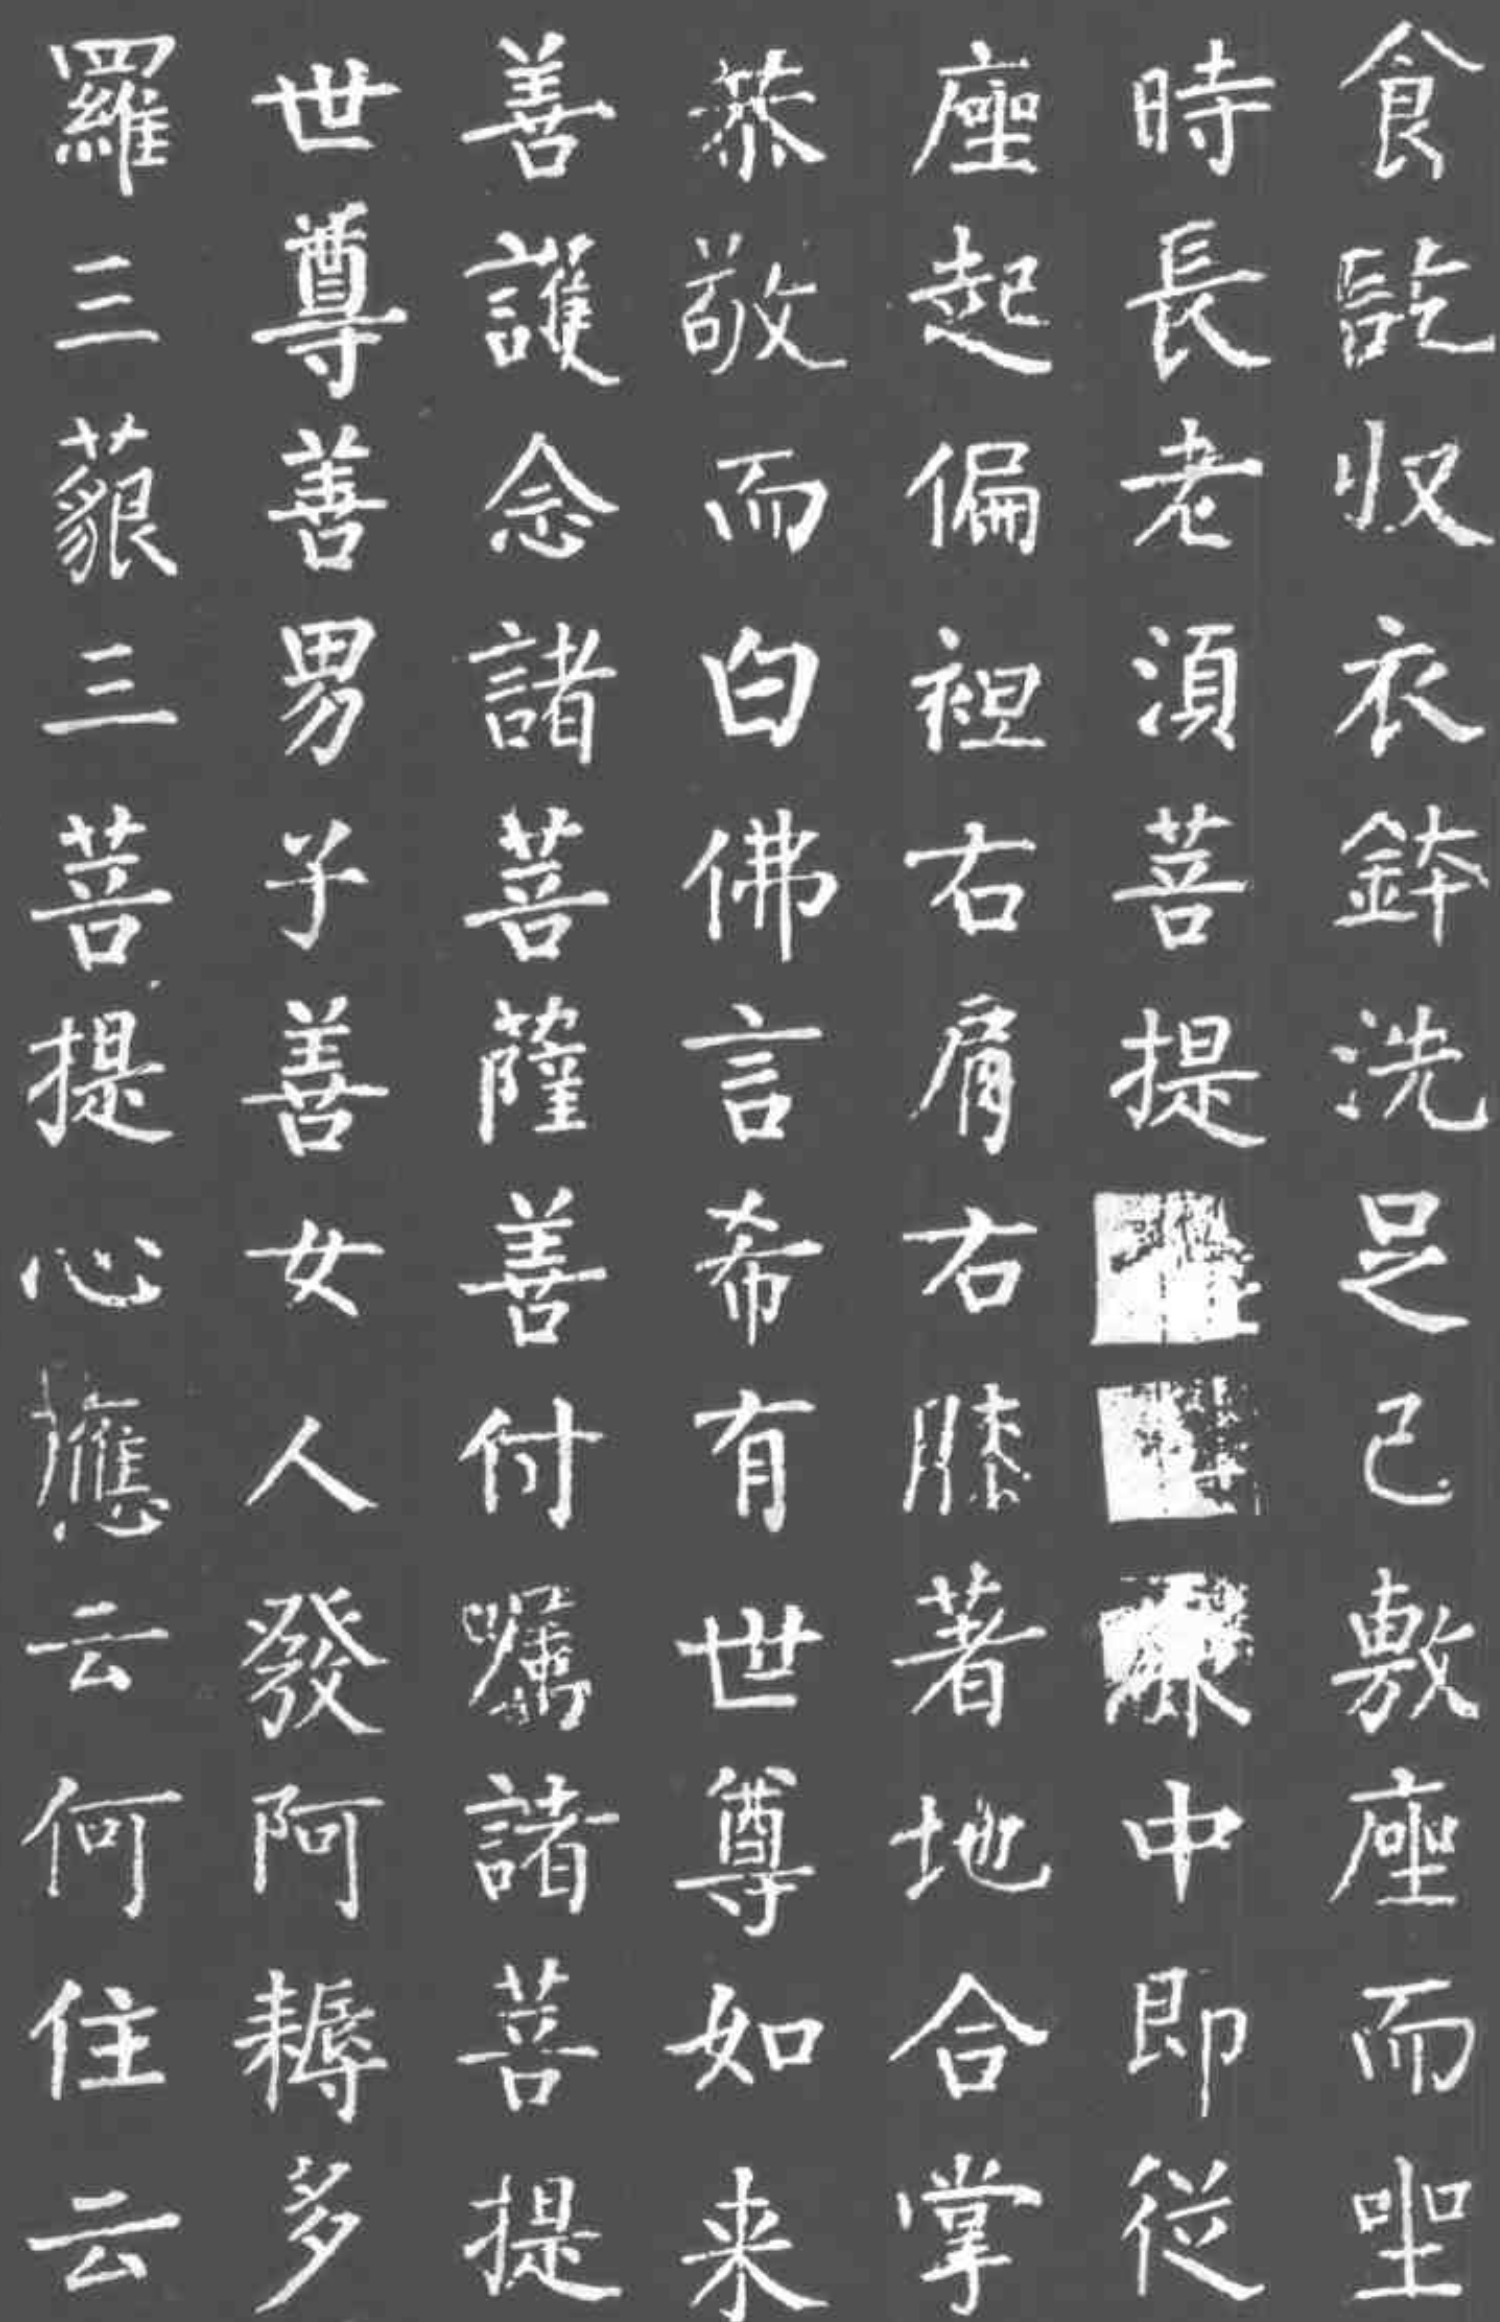 食訖収衣鉢洗足已敷座而坐
時長老湏菩提衆中即従
座起偏袒右肩右膝著地合掌
恭敬而白佛言希有世尊如来
善護念諸菩薩善付囑諸菩提
世尊善男子善女人發阿耨多
羅三藐三菩提心應云何住云